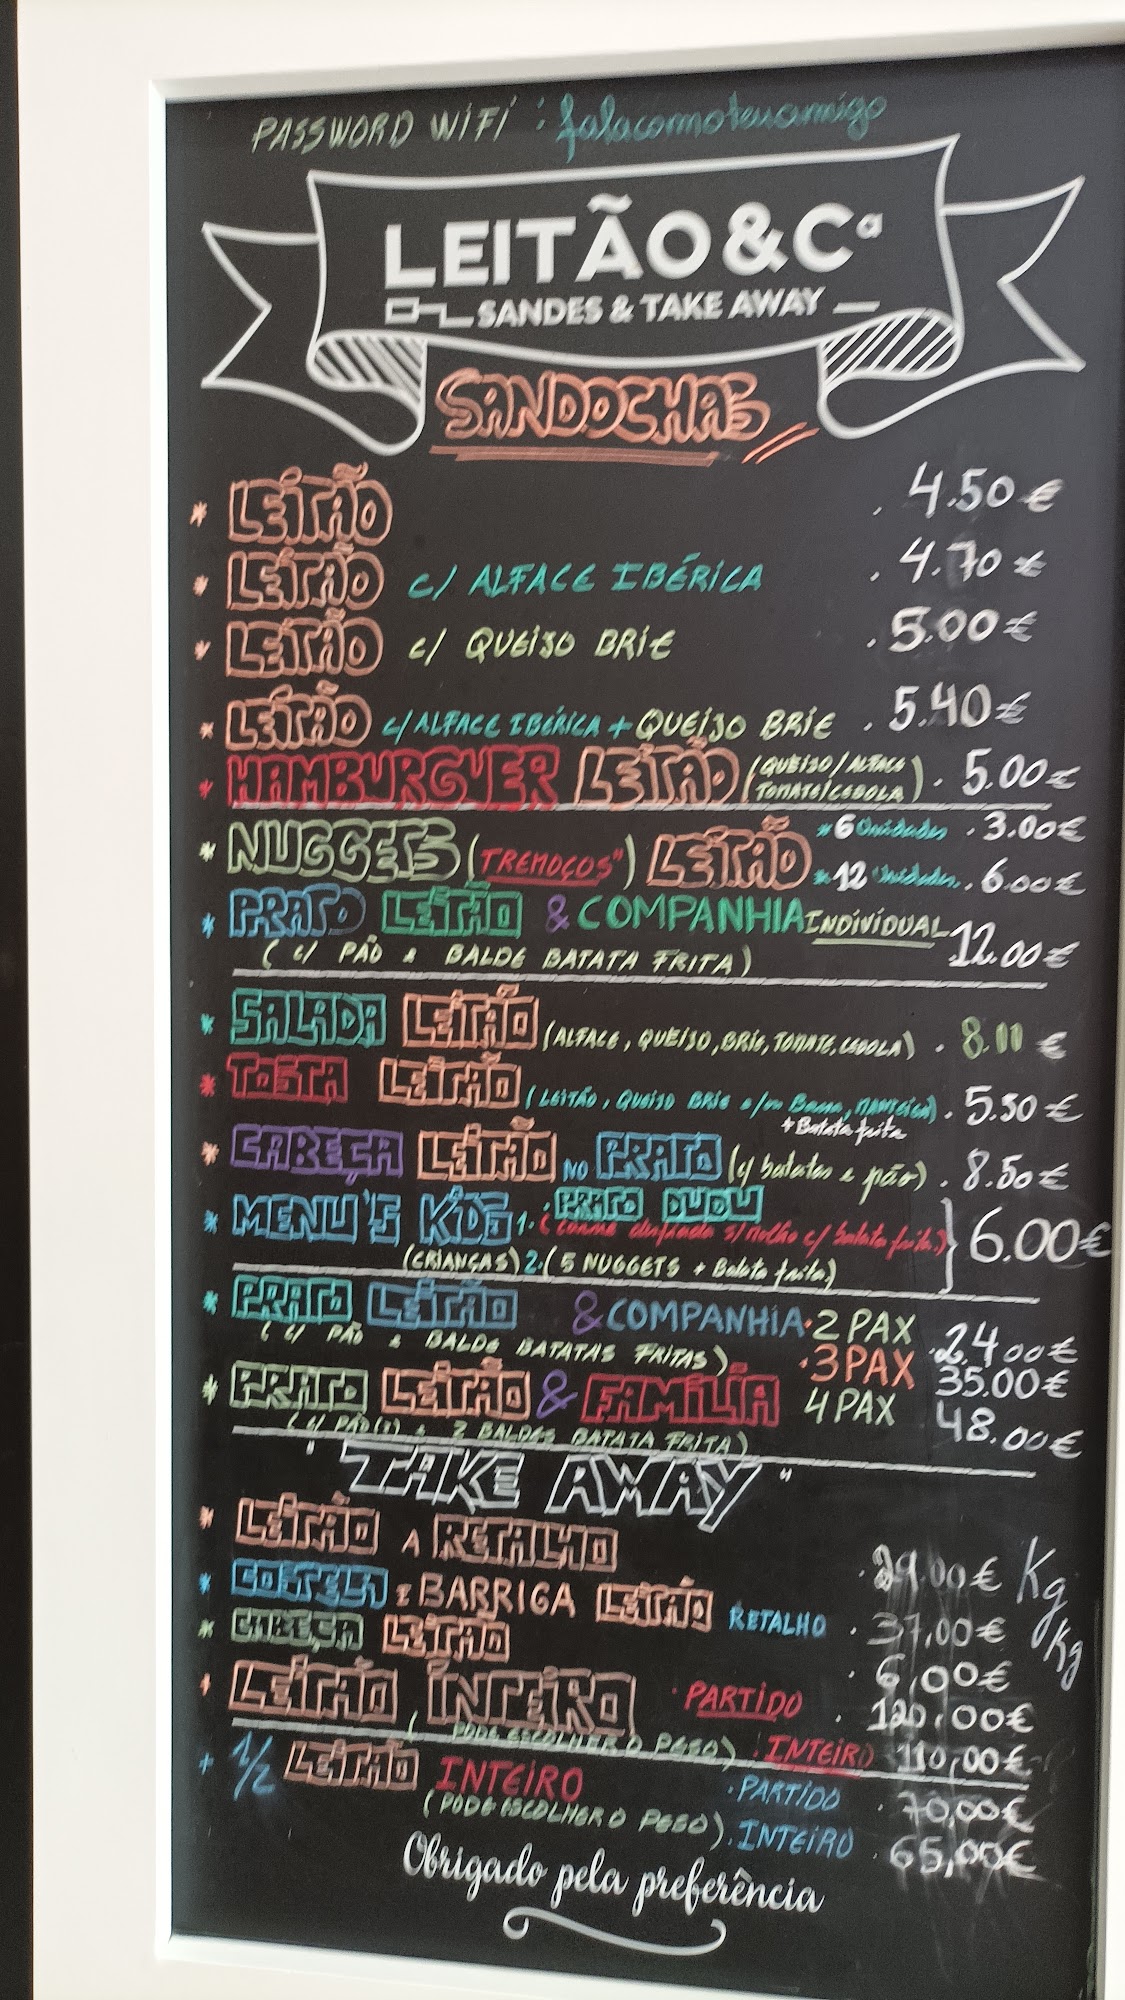 PASSWORD WIFI : falacomoteuamigo
LEITÃO & Cª
SANDES & TAKE AWAY
SANDOCHAS
* LEITÃO . 4.50 €
* LEITÃO c/ ALFACE IBÉRICA . 4.70 €
* LEITÃO c/ QUEIJO BRIE . 5.00 €
* LEITÃO c/ ALFACE IBÉRICA + QUEIJO BRIE . 5.40 €
* HAMBURGUER LEITÃO (QUEIJO/ALFACE TOMATE/CEBOLA) . 5.00 €
* NUGGETS (TREMOÇOS") LEITÃO * 6 Unidades . 3.00 €
* 12 Unidades . 6.00 €
* PRATO LEITÃO & COMPANHIA INDIVIDUAL 12.00 €
( c/ PÃO e BALDE BATATA FRITA )
* SALADA LEITÃO (ALFACE, QUEIJO, BRIE, TOMATE, CEBOLA) . 8.00 €
* TOSTA LEITÃO (LEITÃO, QUEIJO BRIE MANTEIGA) . 5.50 €
+ Batata frita
* CABEÇA LEITÃO NO PRATO (c/ batatas e pão) . 8.50 €
* MENU'S KIDS 1. PRATO DUDU
(Carne desfiada s/molho c/ batata frita) } 6.00 €
(CRIANÇAS) 2. ( 5 NUGGETS + Batata frita)
* PRATO LEITÃO & COMPANHIA . 2 PAX . 24.00 €
( c/ PÃO e BALDE BATATAS FRITAS ) . 3 PAX 35.00 €
* PRATO LEITÃO & FAMÍLIA 4 PAX 48.00 €
( c/ PÃO(s) e 2 BALDES BATATA FRITA )
" TAKE AWAY "
* LEITÃO A RETALHO . 29.00 € Kg
* COSTELA E BARRIGA LEITÃO RETALHO . 37,00 € Kg
* CABEÇA LEITÃO . 6,00 €
* LEITÃO INTEIRO . PARTIDO . 120,00 €
( PODE ESCOLHER O PESO) . INTEIRO 110,00 €
+ 1/2 LEITÃO INTEIRO . PARTIDO . 70,00 €
( PODE ESCOLHER O PESO ) . INTEIRO . 65,00 €
Obrigado pela preferência